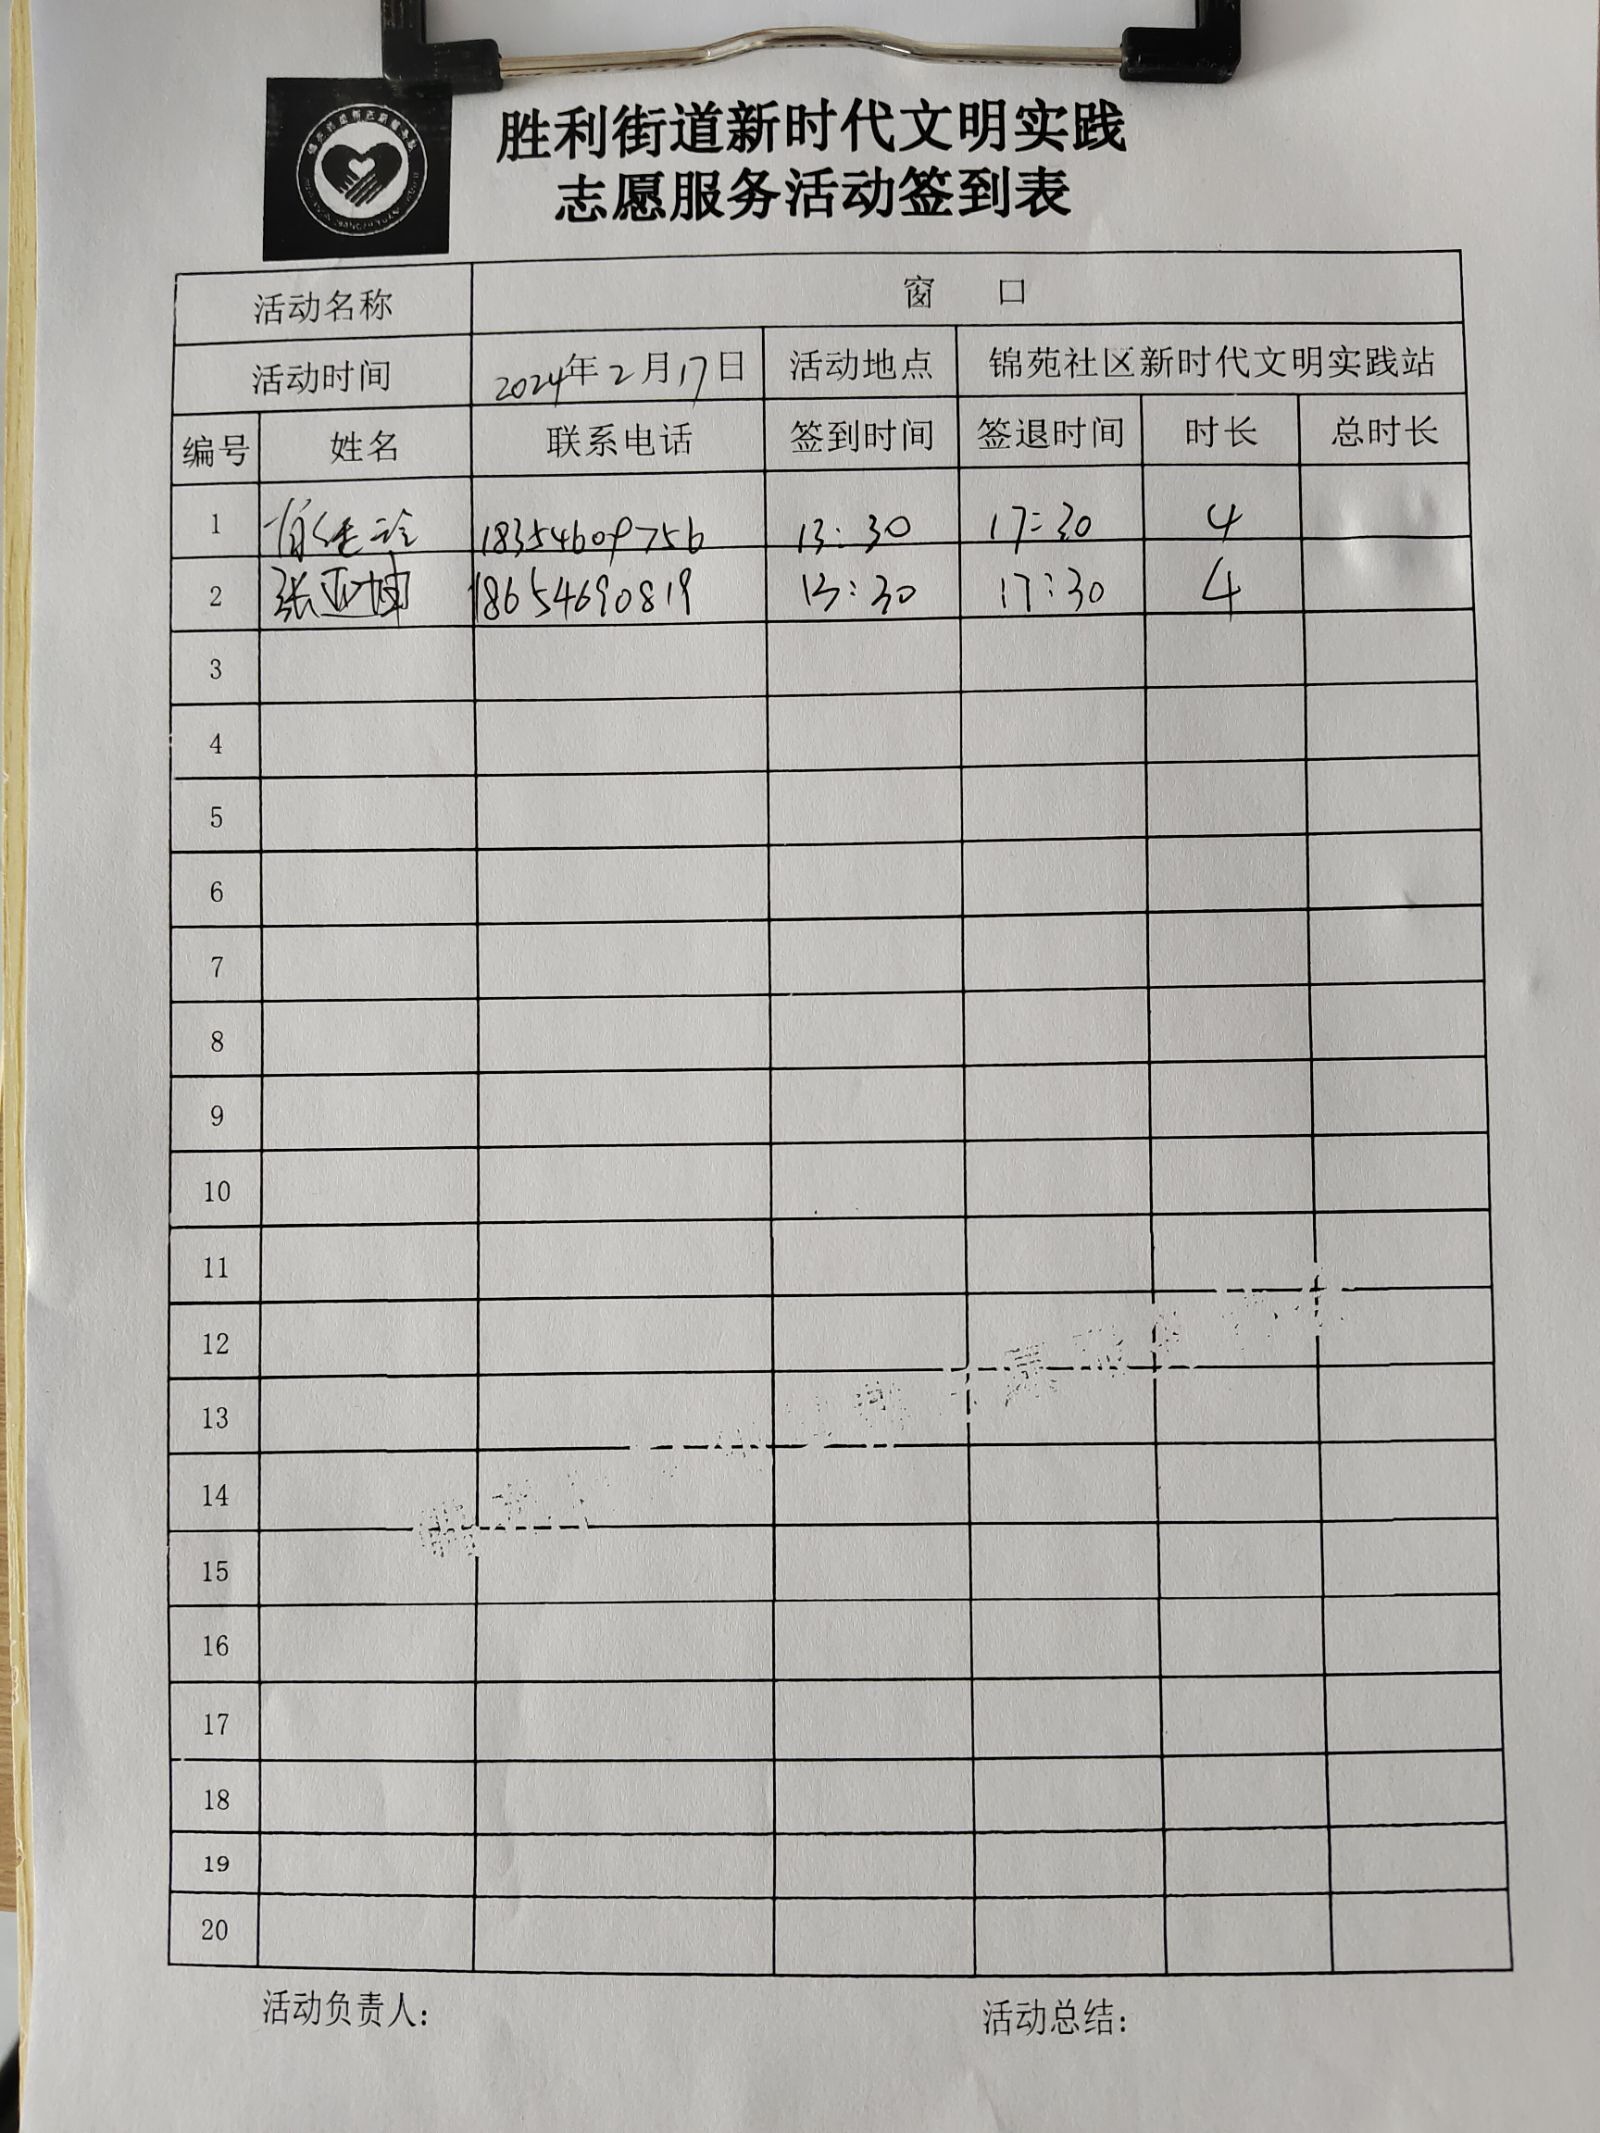 胜利街道新时代文明实践
志愿服务活动签到表
活动名称 窗 口
活动时间 2024年2月17日 活动地点 锦苑社区新时代文明实践站
编号 姓名 联系电话 签到时间 签退时间 时长 总时长
1 18354609756 13:30 17:30 4
2 张亚坤 18654690819 13:30 17:30 4
3
4
5
6
7
8
9
10
11
12
13
14
15
16
17
18
19
20
活动负责人: 活动总结: